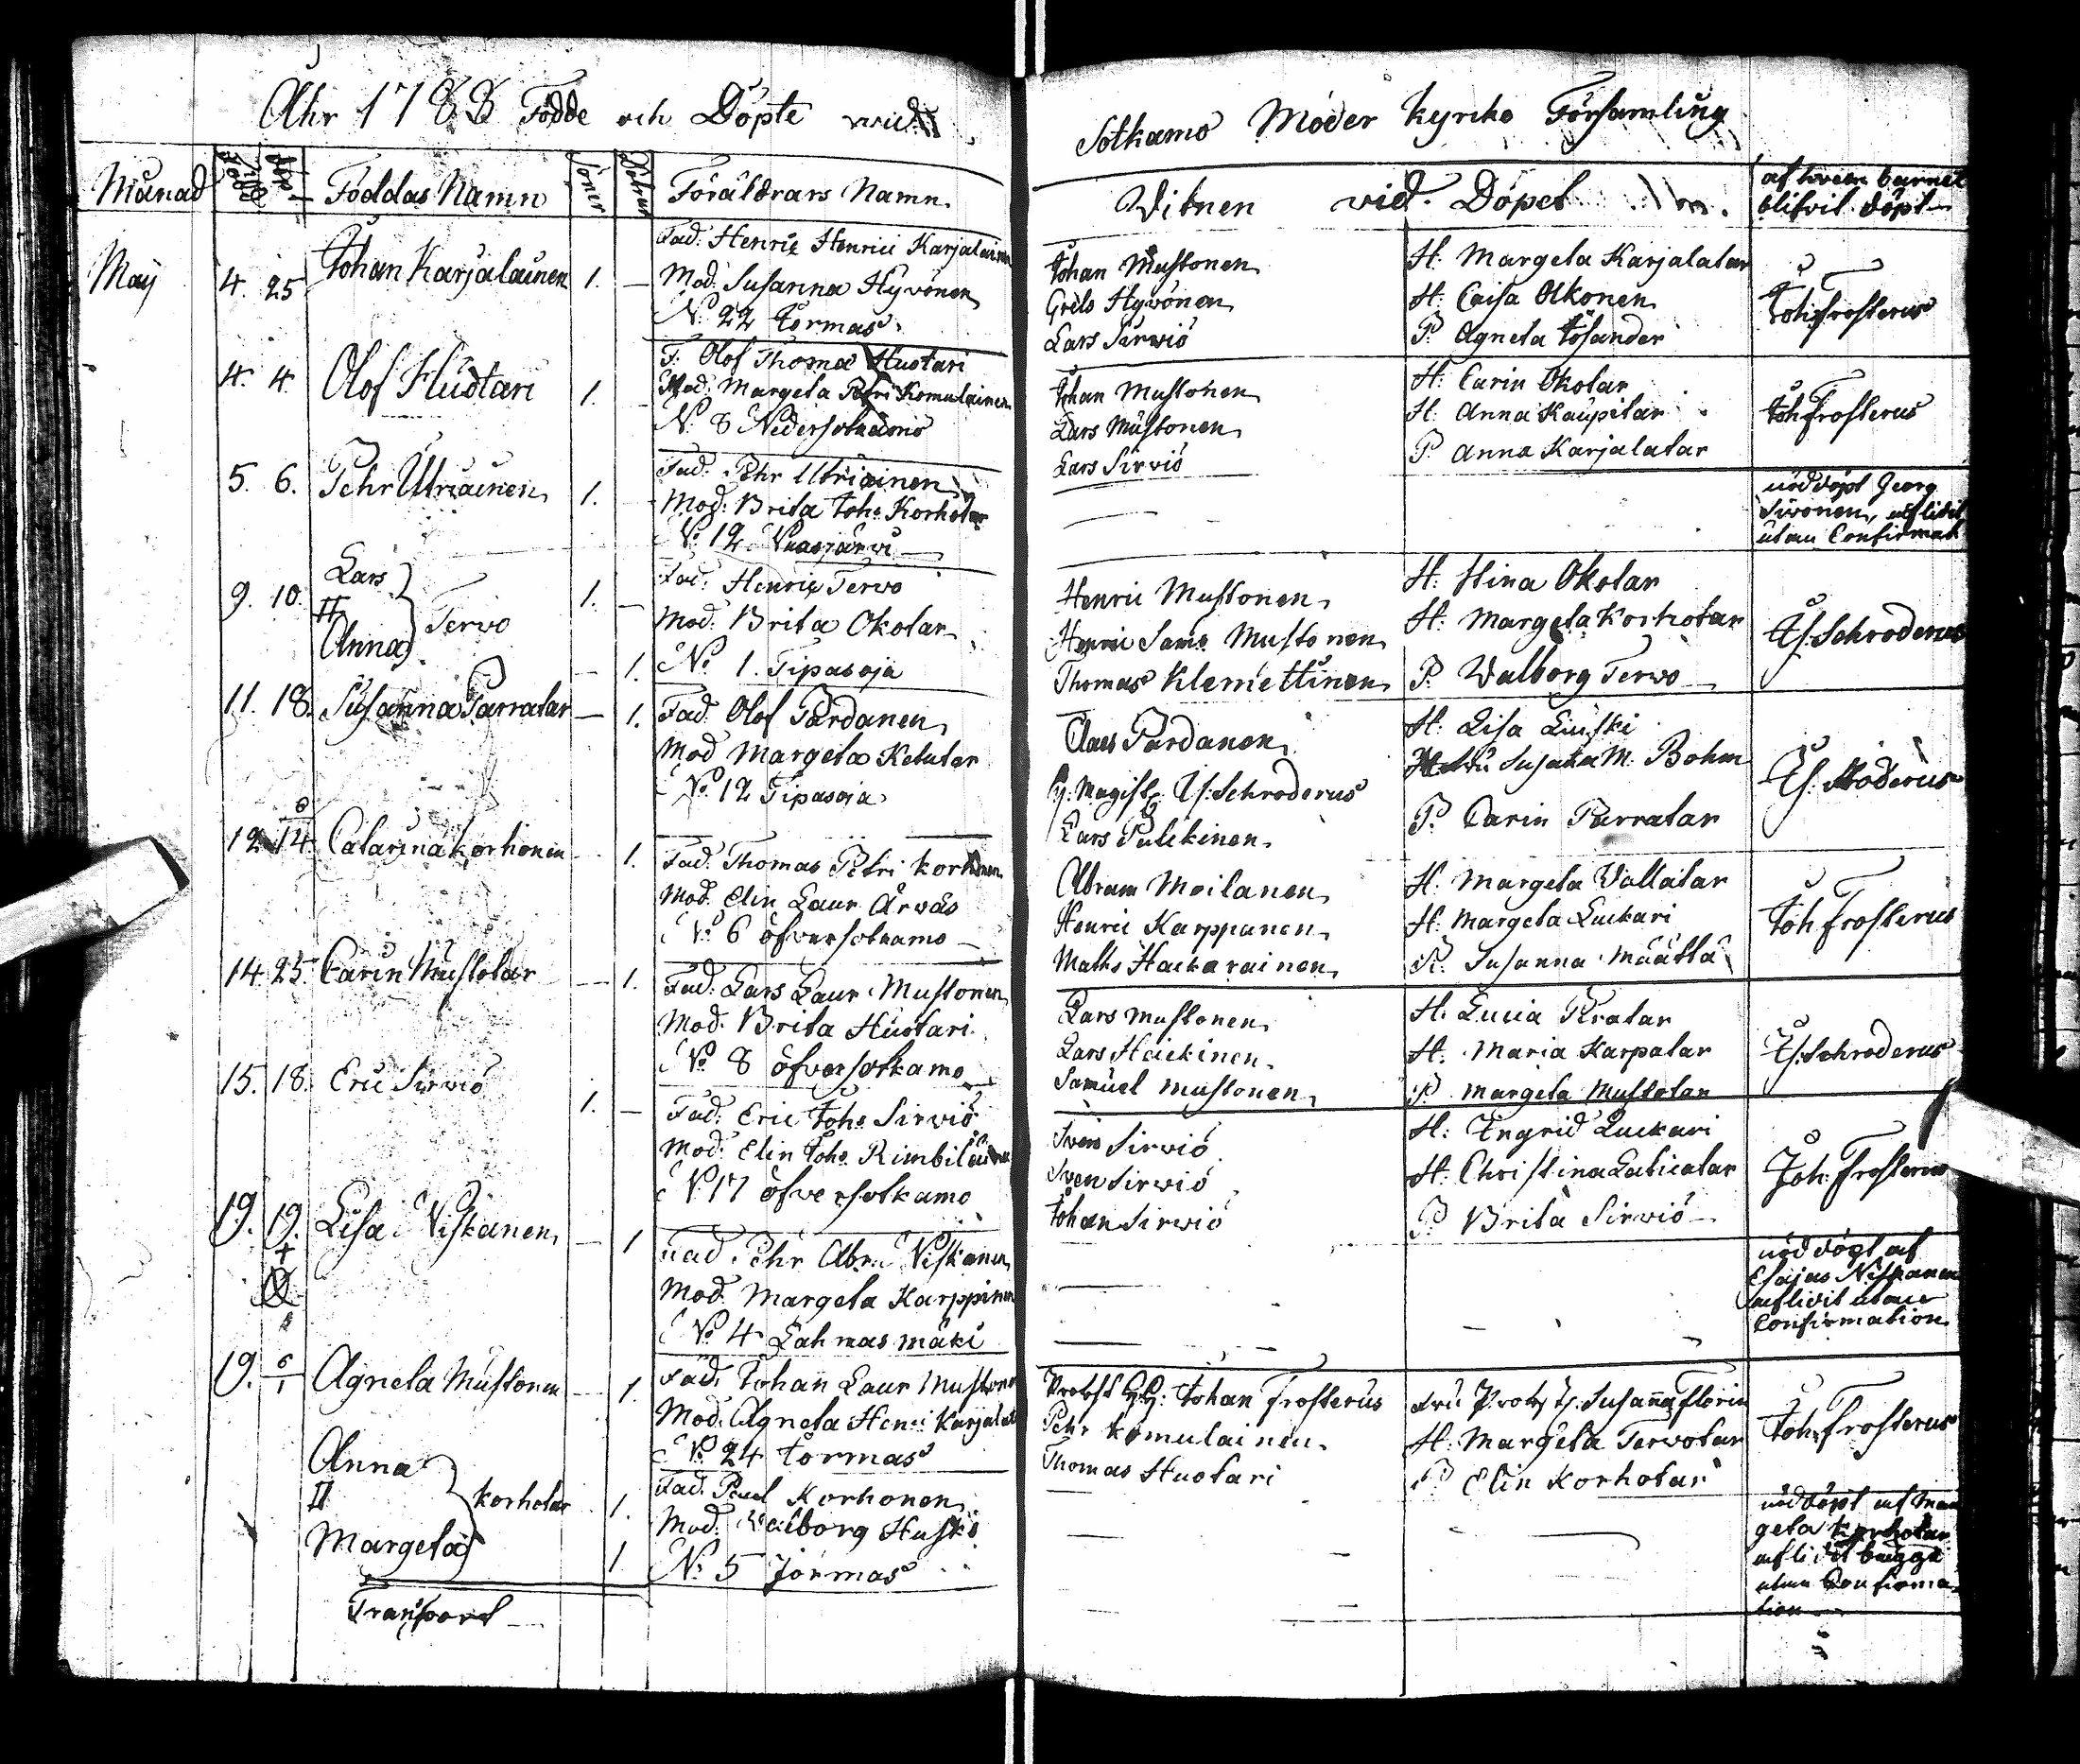 Åhr 1788 Födde och Döpte wid
Sotkamo Moder Kyrcko Församling
Månad Född Döp Föddas Namn Söner Döttrar Föräldrars Namn
Vitnen vid Döpet
af hvem barnet
blifvit döpt
Maij 4. 25 Johan Karjalainen 1. —
Fad. Henric Henrici Karjalainen
Mod. Susanna Hyvönen
N. 22 Jormas
Johan Mustonen
Grels Hyvönen
Lars Sirviö
H. Margeta Karjalatar
H. Caisa Okkonen
P. Agneta Cösander
Joh. Frosterus
4. 4. Olof Huotari 1.
F. Olof Thomæ Huotari
Mod. Margeta Petri Komulainen
N. 8 Nedersotkamo
Johan Mustonen
Lars Mustonen
Lars Sirviö
H. Carin Okotar
H. Anna Kaupitar
P. Anna Karjalatar
Joh Frosterus
5. 6. Pehr Utriainen 1.
Fad. Pehr Utriainen
Mod. Brita Joh. Korhotar
N. 12 Naasjärvi
nöddöpt Georg
Sivonen, aflidit
utan Confirmat
9. 10. Lars
II
Anna
Tervo 1. —
— 1.
Fad. Henric Tervo
Mod. Brita Okotar
No 1. Tipasoja
Henric Mustonen
Henric Sams. Mustonen
Thomas Klemettinen
H. Stina Okotar
H. Margeta Korhotar
P. Walborg Tervo
Es. Schroderus
11. 18. Susanna Parratar — 1.
Fad. Olof Pardanen
Mod Margeta Ketutar
No 12 Tipasoja
Claes Pardanen
H. Magist. Es. Schroderus
Lars Pulckinen
H. Lisa Luiski
Susanna M. Bohm
P. Carin Parratar
Es. Schroderus
12. 14. Catarina Korhonen 1.
Fad. Thomas Petri Korhonen
Mod. Elin Laur. Ärväs
N. 6 öfversotkamo
Abram Moilanen
Henric Karppanen
Maths Hackarainen
H. Margeta Vallatar
H. Margeta Luckari
P. Susanna Määttä
Joh Frosterus
14 25. Carin Mustotar — 1.
Fad. Lars Laur. Mustonen
Mod. Brita Huotari
No 8 öfversotkamo
Lars Mustonen
Lars Heickinen
Samuel Mustonen
H. Lucia Piratar
H. Maria Karpatar
P. Margeta Mustotar
Es. Schroderus
15. 18. Eric Sirviö 1. —
Fad. Eric Joh. Sirviö
Mod. Elin Joh. Rimbiläinen
N. 17 öfversotkamo
Sven Sirviö
Sven Sirviö
Johan Sirviö
H. Ingrid Luckari
H. Christina Laticatar
P. Brita Sirviö
Joh. Frosterus
19. 19. Lisa Niskanen — 1
Fad. Pehr Abr. Niskanen
Mod. Margeta Karppinen
No 4 Lahnasmäki
nöddöpt af
Esaias Niskanen
aflidit utan
Confirmation
19. 6/1 Agneta Mustonen — 1.
Fad. Johan Laur Mustonen
Mod. Agneta Henric Karjalat
N. 24 Jormas
Probst HH. Johan Frosterus
Pehr Komulainen
Thomas Huotari
Fru Susanna Florin
H. Margeta Tervotar
P. Elin Korhotar
Joh Frosterus
Anna
II
Margeta
Korhotar 1.
1.
Fad. Paul Korhonen
Mod. Walborg Huski
N. 5 Jormas
nöddöpt af Mar
geta Korhotar
aflidit bägge
utan Confirma
tion
Transport